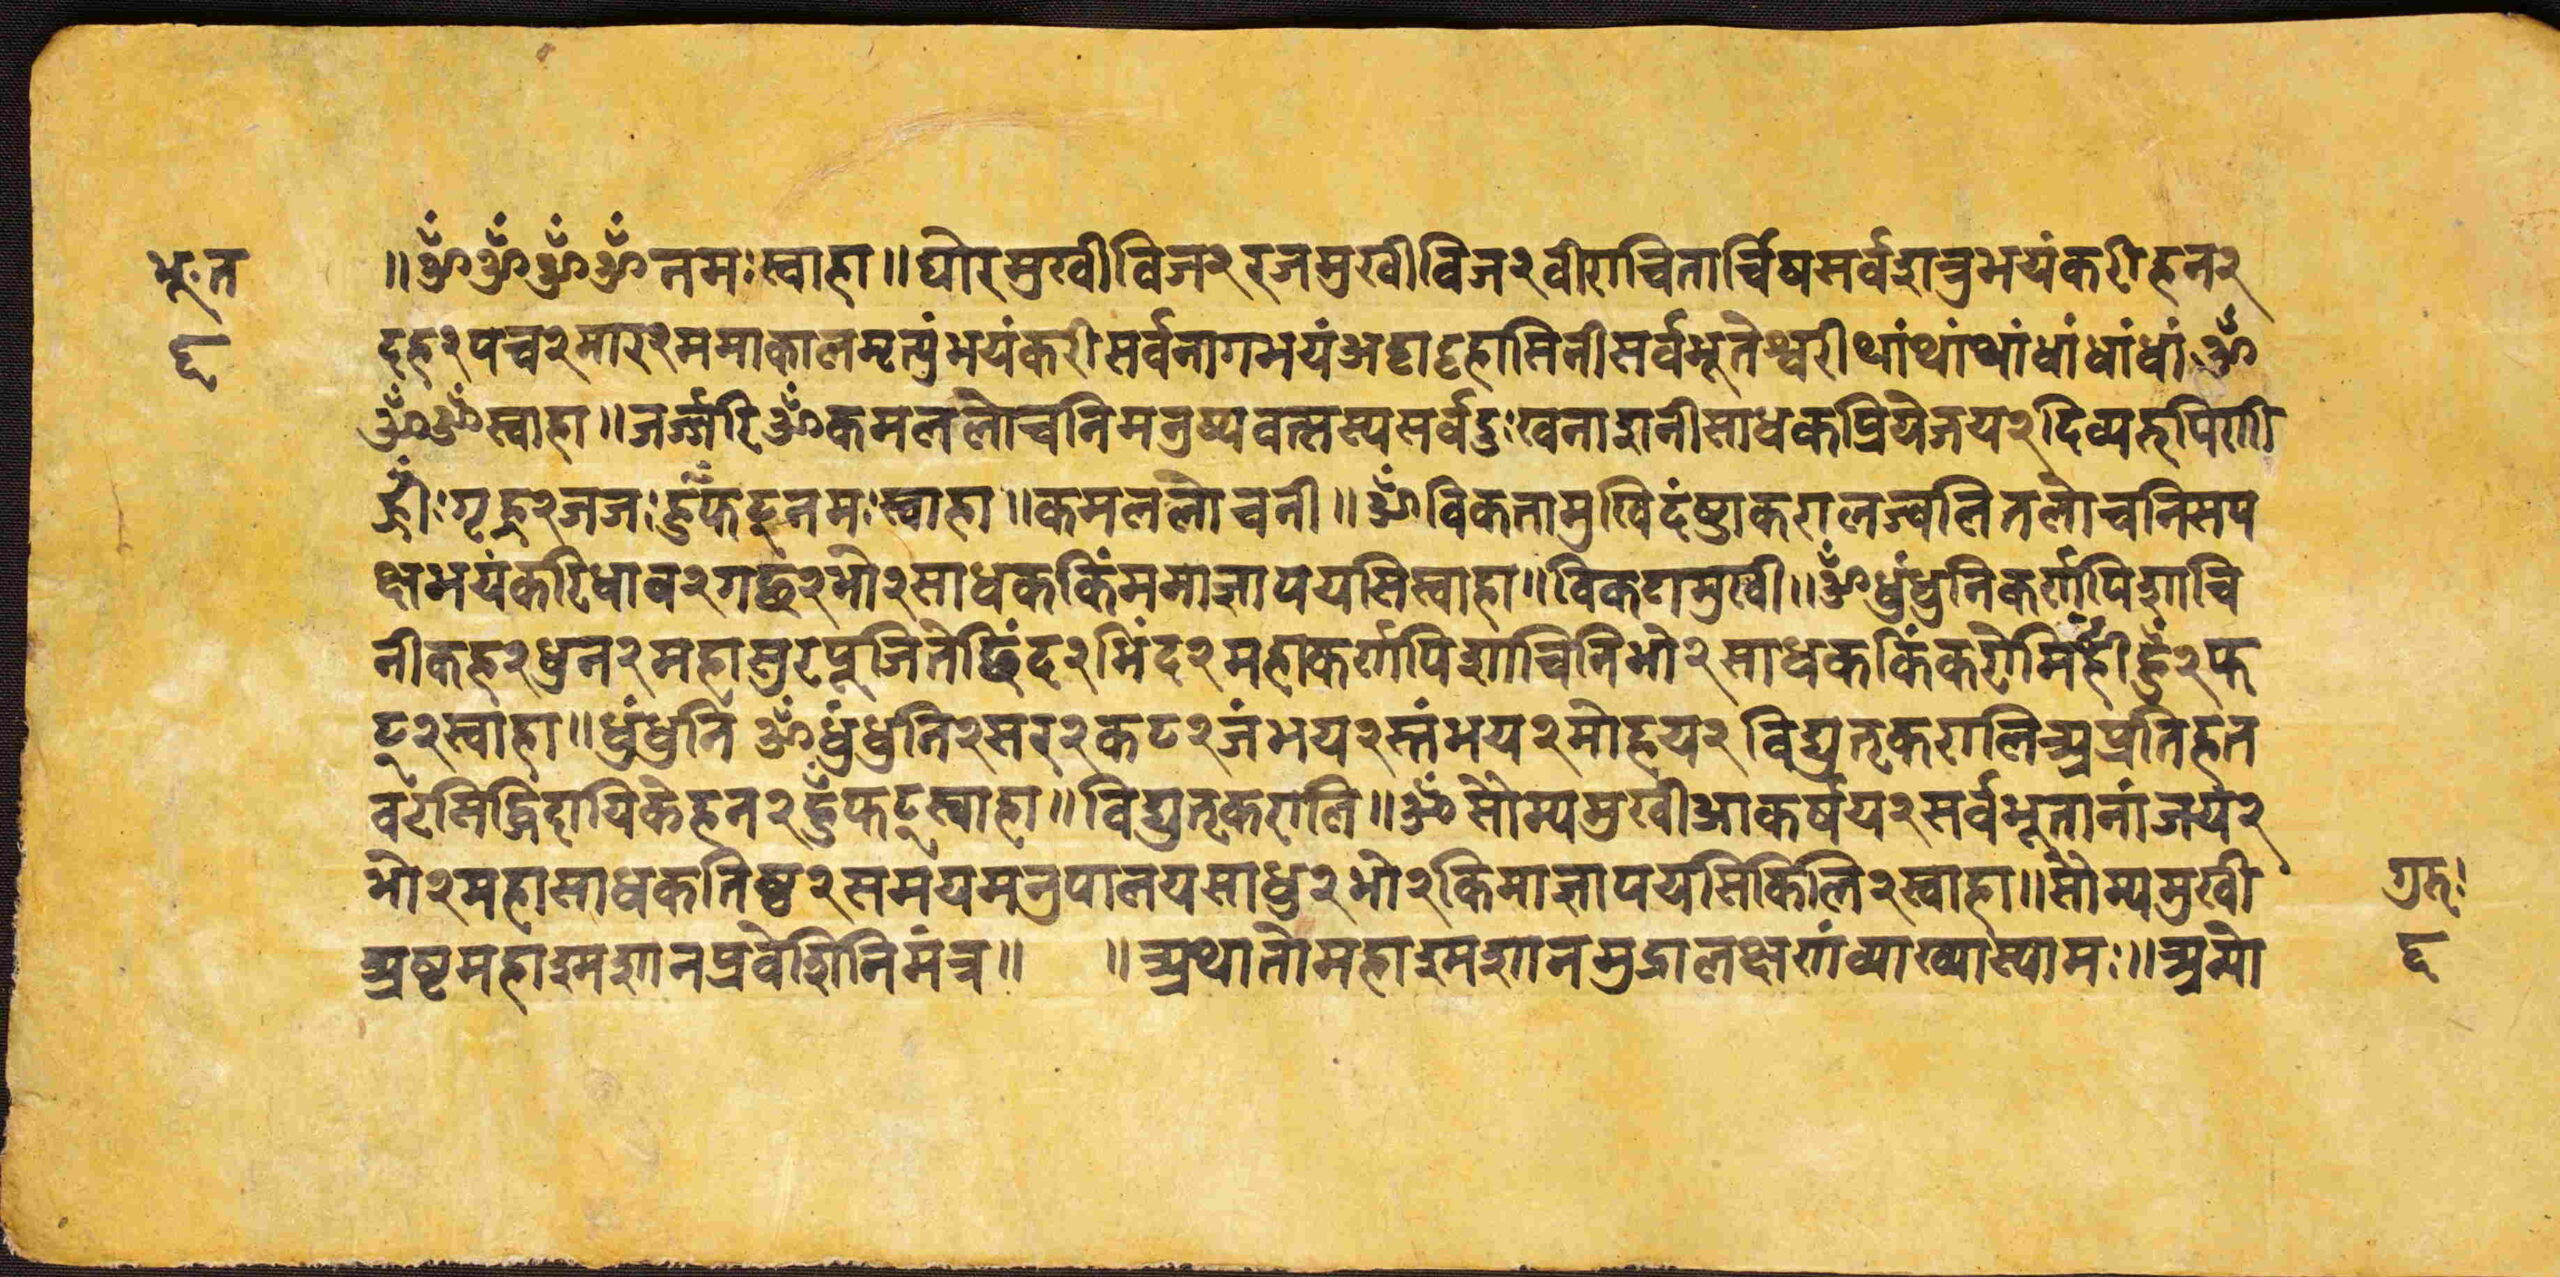 भू॰त
६
॥ॐँॐँॐँॐँनमःस्वाहा॥घोरमुखीविज२रजमुखीविज२वीराचितार्चिषसर्वशत्रुभयंकरीहन२
दह२पच२मार२ममाकालमृत्युंभयंकरीसर्वनागभयंअट्टाट्टहासिनीसर्वभूतेश्वरीथांथांथांधांधांधांॐँ
ॐँॐँस्वाहा॥जर्ज्जरिॐँकमललोचनिमनुष्यवत्सस्यसर्वदुःखनाशनीसाधकप्रियेजय२दिव्यरूपिणी
ह्रीँःगृह्ण२जजःहुँफट्नमःस्वाहा॥कमललोचनी॥ॐँविकतामुखिदंष्ट्राकरालज्वलितलोचनिसप
क्षभयंकरिधाव२गछ२भो२साधककिंममाज्ञापयसिस्वाहा॥विकटामुखी॥ॐँधुंधुनिकर्णपिशाचि
नीकह२धुन२महासुरपूजितेछिंद२भिंद२महाकर्णपिशाचिनिभो२साधककिंकरोमिह्रीँहुँ२फ
ट्२स्वाहा॥धुंधुनि ॐँधुंधुनि२सर२कट२जंभय२स्तंभय२मोहय२विद्युतृकरालिअप्रतिहत
वरसिद्धिदायिकेहन२हुँफट्स्वाहा॥विद्युतृकरालि॥ॐँसौम्यमुखीआकर्षय२सर्वभूतानांजय२
भो२महासाधकतिष्ठ२समयमनुपालयसाधु२भो२किमाज्ञापयसिकिलि२स्वाहा॥सौम्यमुखी
अष्टमहाश्मशानप्रवेशिनिमंत्र॥ ॥अथातोमहाश्मशानमुद्रालक्षणंव्याख्यास्यामः॥अमो
गुरुः
६